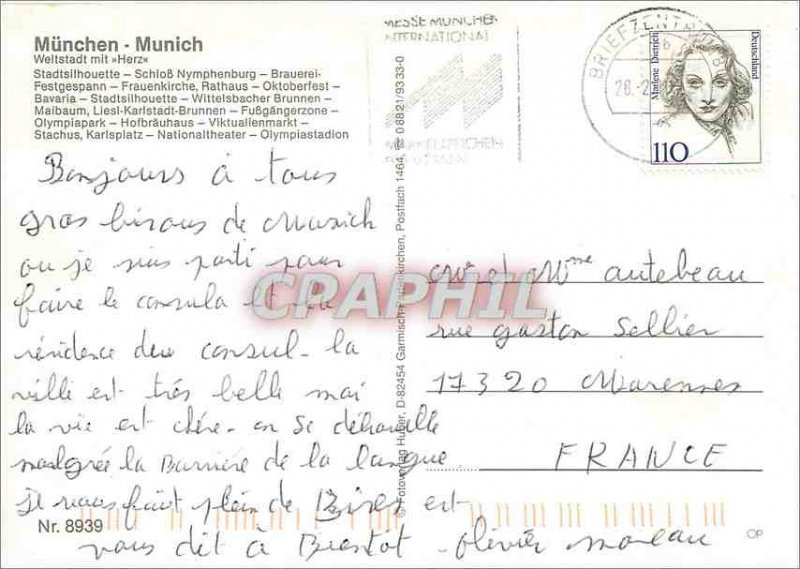 München - Munich
Weltstadt mit »Herz«
Stadtsilhouette – Schloß Nymphenburg – Brauerei-
Festgespann – Frauenkirche, Rathaus – Oktoberfest –
Bavaria – Stadtsilhouette – Wittelsbacher Brunnen –
Maibaum, Liesl-Karlstadt-Brunnen – Fußgängerzone –
Olympiapark – Hofbräuhaus – Viktualienmarkt –
Stachus, Karlsplatz – Nationaltheater – Olympiastadion
Bonjours à tous
gros bisous de Munich
ou je suis parti pour
faire le consula et la
résidence du consul - la
ville est très belle mai
la vie est chère - on se débrouille
malgrée la Barrière de la langue
je vous fait plein de Bises est
vous dit à Bientot - olivier moreau
Nr. 8939
© Fotoverlag Huber, D-82454 Garmisch-Partenkirchen, Postfach 1464, ☎ 08821/9333-0
MESSE MÜNCHEN
INTERNATIONAL
BRIEFZENTRUM
Marlene Dietrich
Deutschland
110
Mr et Mme autebeau
rue gaston Sellier
17320 Marennes
FRANCE
OP
CPAPHIL